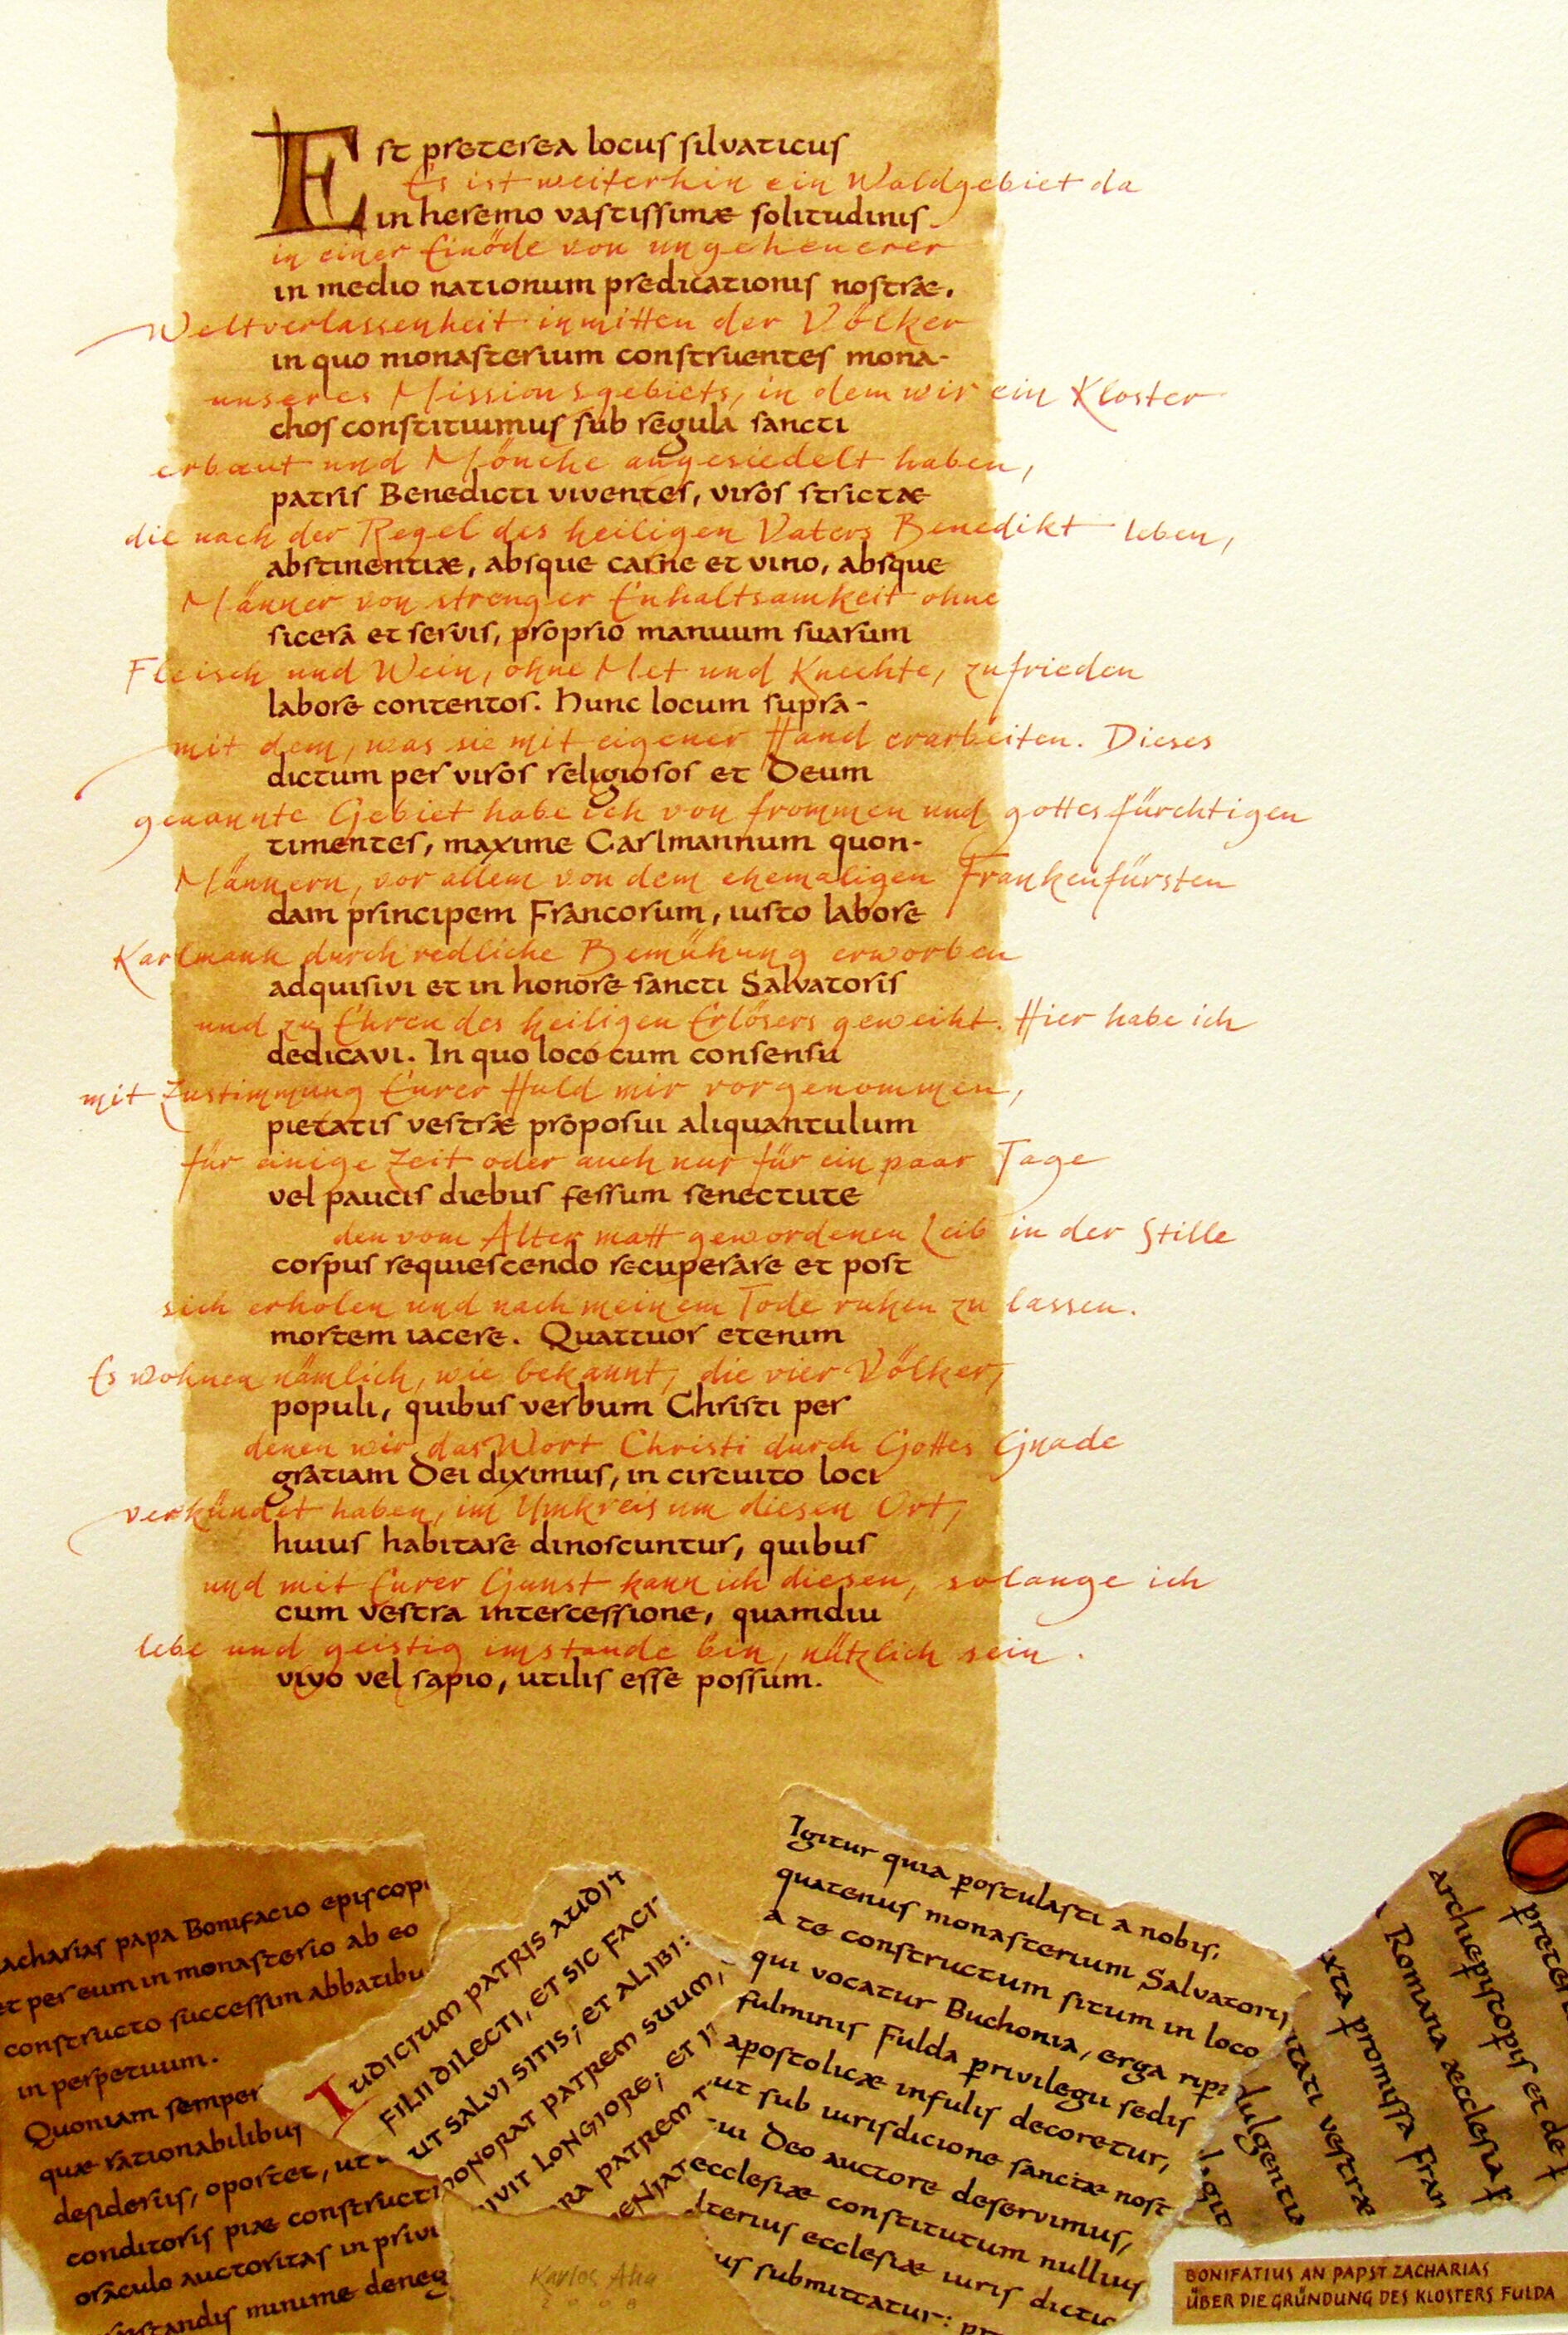 Est preterea locus silvaticus
Es ist weiterhin ein Waldgebiet da
in heremo vastissimæ solitudinis
in einer Einöde von ungeheuerer
in medio nationum predicationis nostræ.
Weltverlassenheit inmitten der Völker
in quo monasterium construentes mona-
unseres Missionsgebiets, in dem wir ein Kloster
chos constituimus sub regula sancti
erbaut und Mönche angesiedelt haben,
patris Benedicti viventes, viros strictæ
die nach der Regel des heiligen Vaters Benedikt leben,
abstinentiæ, absque carne et vino, absque
Männer von strenger Enhaltsamkeit ohne
sicera et servis, proprio manuum suarum
Fleisch und Wein, ohne Met und Knechte, zufrieden
labore contentos. Hunc locum supra-
mit dem, was sie mit eigener Hand erarbeiten. Dieses
dictum per viros religiosos et Deum
genannte Gebiet habe ich von frommen und gottesfürchtigen
timentes, maxime Carlmannum quon-
Männern, vor allem von dem ehemaligen Frankenfürsten
dam principem Francorum, iusto labore
Karlmann durch redliche Bemühung erworben
adquisivi et in honore sancti Salvatoris
und zu Ehren des heiligen Erlösers geweiht. Hier habe ich
dedicavi. In quo loco cum consensu
mit Zustimmung Eurer Huld mir vorgenommen,
pietatis vestræ proposui aliquantulum
für einige Zeit oder auch nur für ein paar Tage
vel paucis diebus fessum senectute
den vom Alter matt gewordenen Leib in der Stille
corpus requiescendo recuperare et post
sich erholen und nach meinem Tode ruhen zu lassen.
mortem iacere. Quattuor etenim
Es wohnen nämlich, wie bekannt, die vier Völker,
populi, quibus verbum Christi per
denen wir das Wort Christi durch Gottes Gnade
gratiam Dei diximus, in circuito loci
verkündet haben, im Umkreis um diesen Ort,
huius habitare dinoscuntur, quibus
und mit Eurer Gunst kann ich diesen, solange ich
cum vestra intercessione, quamdiu
lebe und geistig imstande bin, nützlich sein.
vivo vel sapio, utilis esse possum.
acharias papa Bonifacio episcop
et per eum in monasterio ab eo
constructo successim abbatibu
in perpetuum.
Quoniam semper
quæ rationabilibus
desideriis, oportet, ut
conditoris piæ constructi
oraculo auctoritas in privi
minime deneg
IUDICIUM PATRIS AUDIT
FILII DILECTI, ET SIC FACIT
UT SALVI SITIS; ET ALIBI:
HONORAT PATREM SUUM,
VIVIT LONGIORE; ET I
RA PATREM T
Igitur quia postulasti a nobis,
quatenus monasterium Salvatoris
a te constructum situm in loco
qui vocatur Buchonia, erga ripa
fulminis Fulda privilegii sedis
apostolicæ infulis decoretur,
ut sub iurisdicione sanctæ nost
ui Deo auctore deservimus,
ecclesiæ constitutum nullius
lterius ecclesiæ iuris dictio
us submittatur:
archiepiscopis et de
Romana æcclesia
xta promissa Fran
itati vestræ
dulgentia
Karlos Aha
2008
BONIFATIUS AN PAPST ZACHARIAS
ÜBER DIE GRÜNDUNG DES KLOSTERS FULDA